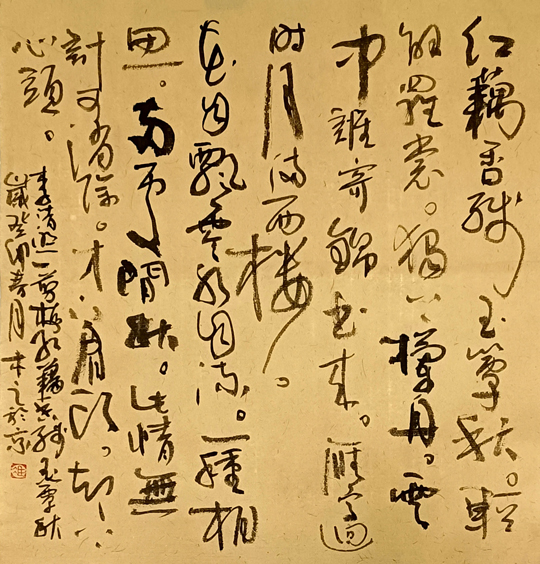 红藕香残玉簟秋。轻
解羅裳。独上蘭舟。雲
中誰寄錦书来。雁字回
时月满西楼。
花自飘零水自流。一種相
思。两處閒愁。此情無
計可消除。才下眉头。却上
心頭。
李清照一剪梅红藕香残玉簟秋
歲癸卯春月木之於京